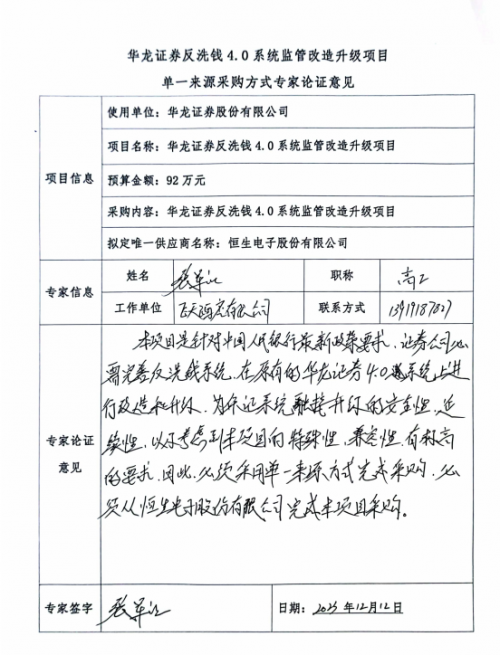 华龙证券反洗钱4.0系统监管改造升级项目
单一来源采购方式专家论证意见
项目信息
使用单位：华龙证券股份有限公司
项目名称：华龙证券反洗钱4.0系统监管改造升级项目
预算金额：92万元
采购内容：华龙证券反洗钱4.0系统监管改造升级项目
拟定唯一供应商名称：恒生电子股份有限公司
专家信息
姓名 张 职称 高工
工作单位 有限公司 联系方式
专家论证意见
本项目是针对中国人民银行最新政策要求，证券公司必
需完善反洗钱系统，在原有的华龙证券4.0系统上进
行改造和升级，为保证系统升级的安全性、连
续性，以及考虑到本项目的特殊性，兼容性，有较高
的要求，因此，必须采用单一来源方式完成采购，必
须从恒生电子股份有限公司完成本项目采购。
专家签字 张 日期：2025年12月12日